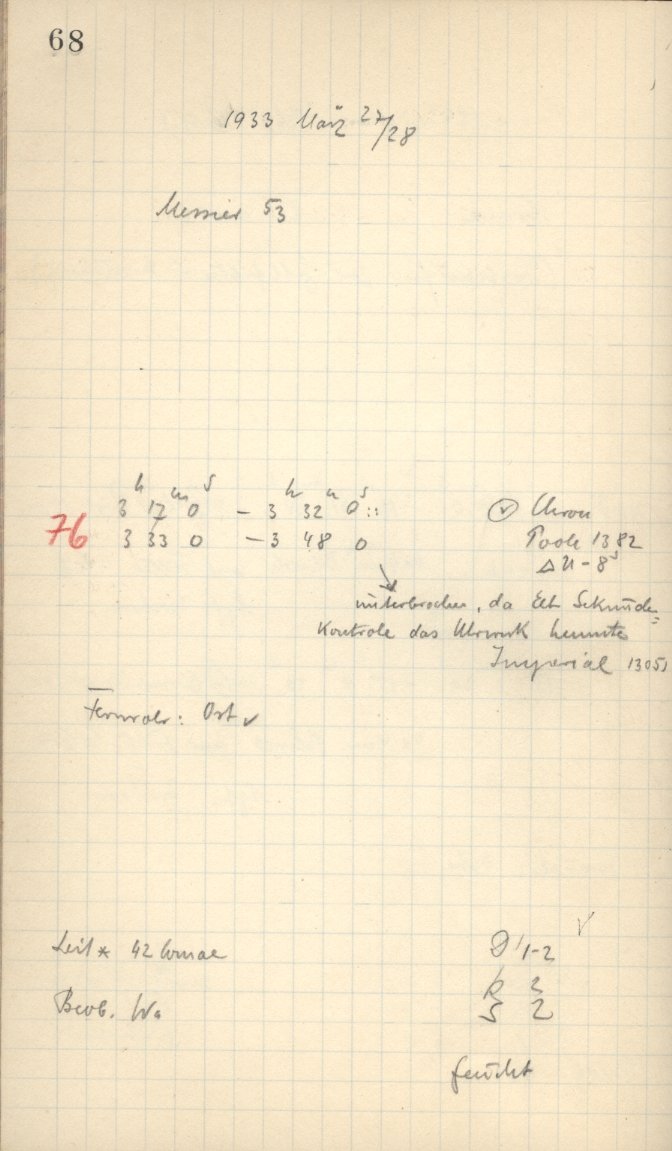 68
1933 März 27/28
Messier 53
h m s h m s
3 17 0 – 3 32 0::
76 3 33 0 – 3 48 0
Chron
Poole 1382
Δu – 8s
unterbrochen, da Elt Sekunden=
Kontrole das Uhrwerk hemmte
Imperial 1305
Fernrohr: Ost ✓
Leit* 42 Comae
1-2
2
S 2
Beob. Wa
feucht